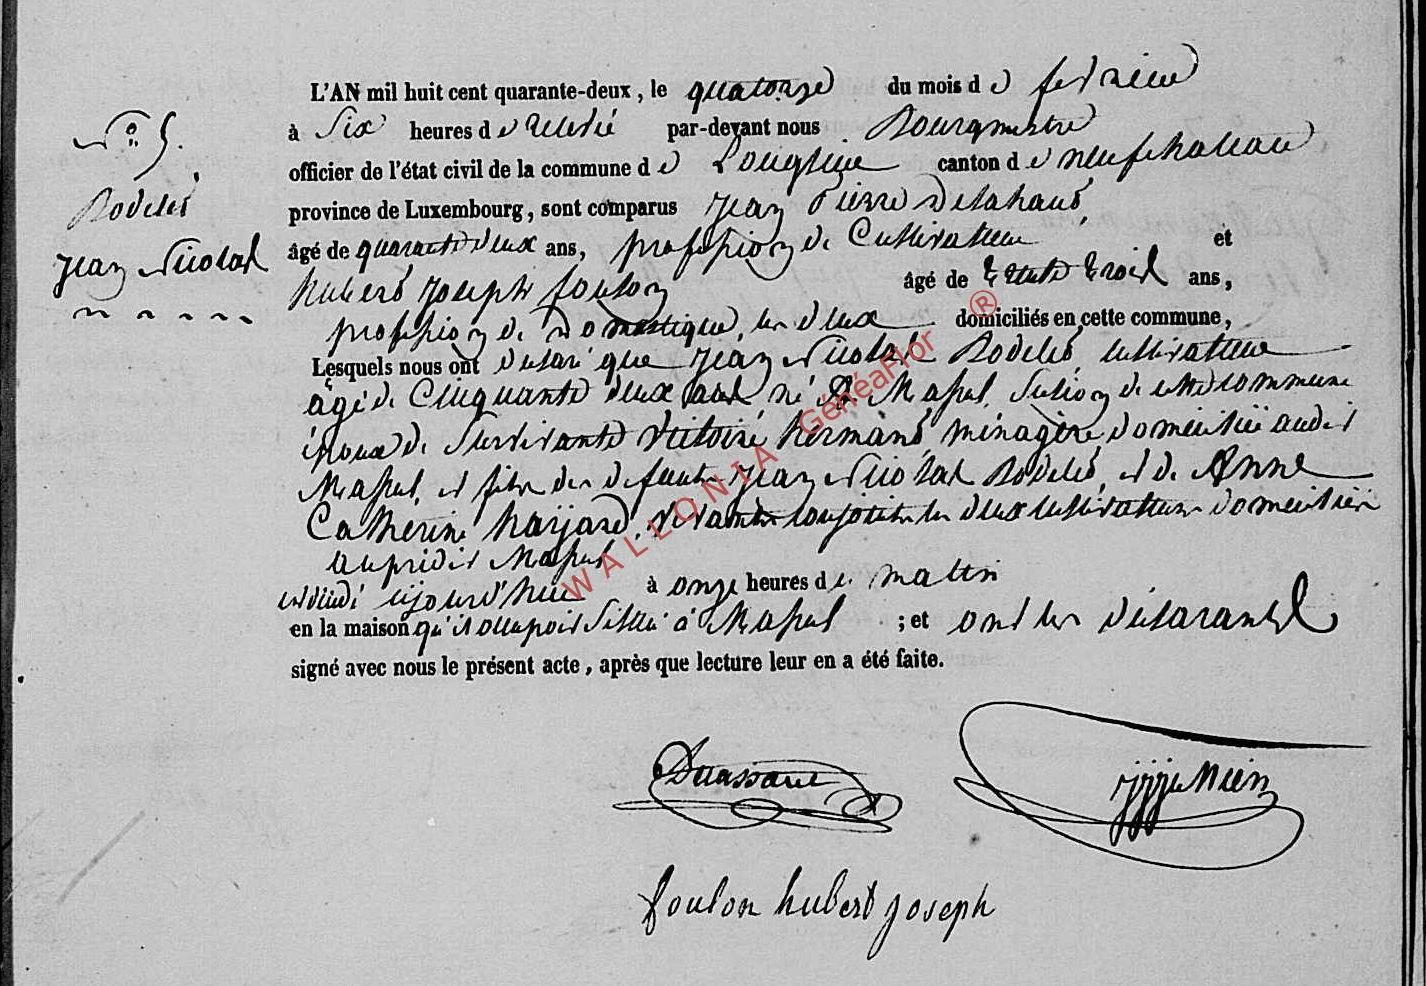 L'AN mil huit cent quarante-deux, le quatorze du mois de fevrier
à Six heures de relevé par-devant nous Bourgmestre
officier de l'état civil de la commune de Longlier canton de neufchateau
province de Luxembourg, sont comparus Jean Pierre
âgé de quarante deux ans, profession de Cultivateur et
hubert joseph foulon âgé de trente trois ans,
profession de domestique, les deux domiciliés en cette commune,
Lesquels nous ont déclaré que Jean Nicolas Bodelet cultivateur
agé de Cinquante deux ans né à Massul, Section de cette commune
époux de Survivante Victoire hermand, ménagère domiciliée audit
Massul, et fils des defunts Jean Nicolas Bodelet, et de Anne
Catherine, vivants conjoints les deux cultivateurs domiciliés
au prédit Massul
est décédé cejourd'hui à onze heures du matin
en la maison qu'il occupoit Sittué à Massul ; et ont les déclarants
signé avec nous le présent acte, après que lecture leur en a été faite.
N° 5.
Bodelet
Jean Nicolas
foulon hubert joseph
WALLONIA GénéaFlor ®